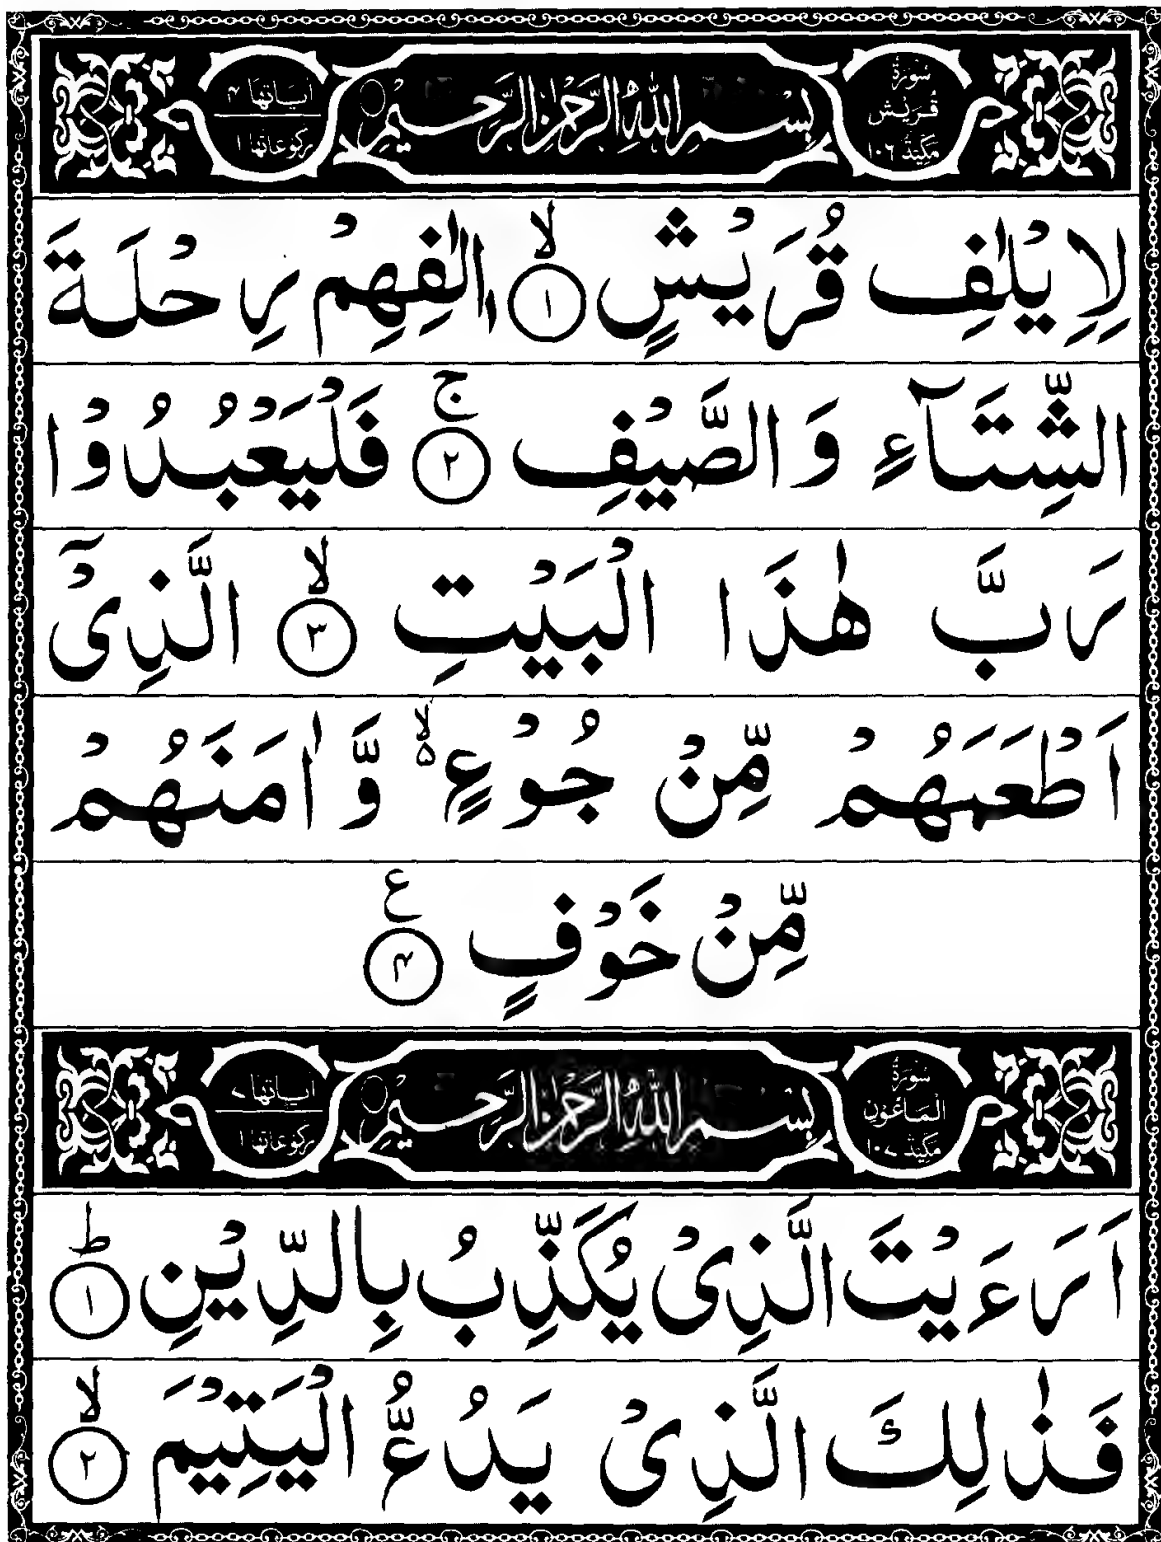 سُوْرَةُ قُرَيْشٍ مَكِّيَّةٌ ١٠٦
بِسْمِ اللهِ الرَّحْمٰنِ الرَّحِيْمِ
اٰيَاتُهَا ۴
رُكُوْعَاتُهَا ١
لِاِيْلٰفِ قُرَيْشٍ ۙ﴿١﴾ اٖلٰفِهِمْ رِحْلَةَ
الشِّتَآءِ وَالصَّيْفِ ۚ﴿٢﴾ فَلْيَعْبُدُوْا
رَبَّ هٰذَا الْبَيْتِ ۙ﴿٣﴾ الَّذِيْۤ
اَطْعَمَهُمْ مِّنْ جُوْعٍ ۙ۵ وَّاٰمَنَهُمْ
مِّنْ خَوْفٍ ﴿۴﴾ ع
سُوْرَةُ الْمَاعُوْنِ مَكِّيَّةٌ ١٠٧
بِسْمِ اللهِ الرَّحْمٰنِ الرَّحِيْمِ
اٰيَاتُهَا ٧
رُكُوْعَاتُهَا ١
اَرَءَيْتَ الَّذِيْ يُكَذِّبُ بِالدِّيْنِ ؕ﴿١﴾
فَذٰلِكَ الَّذِيْ يَدُعُّ الْيَتِيْمَ ۙ﴿٢﴾